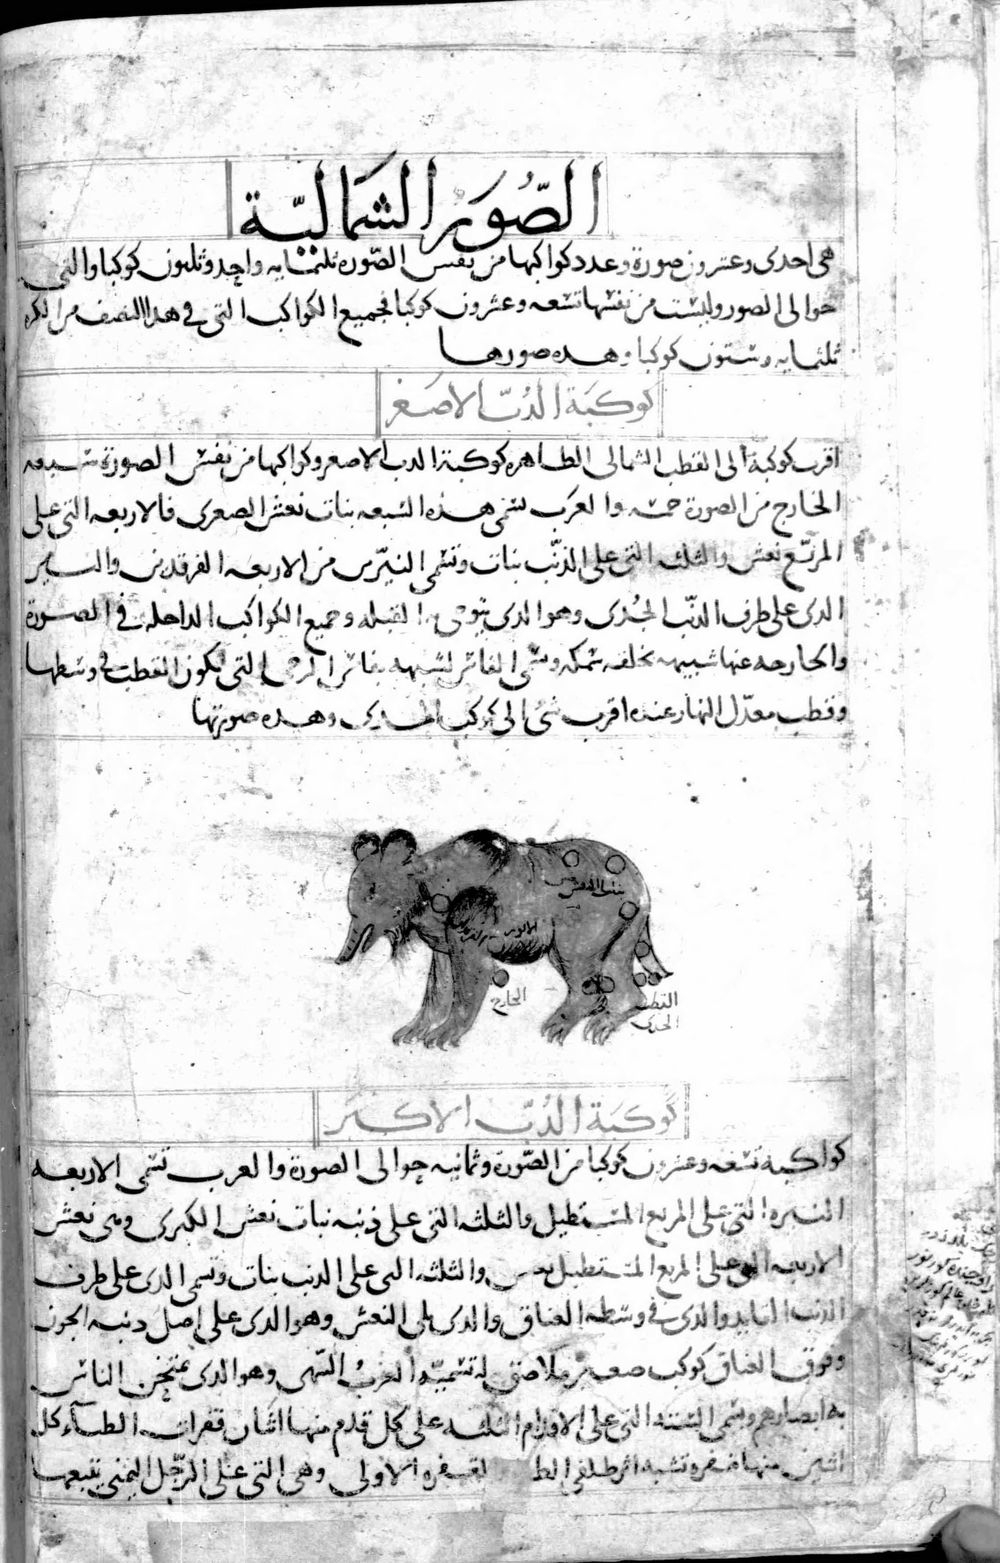 الصُّوَر الشَمَاليّة
هى احدى وعشرون صورة وعدد كواكبها من نفس الصّورة ثلثمايه واحد وثلثون كوكبا والتي
حوالى الصور وليست من نفسها تسعه وعشرون كوكبا فجميع الكواكب التى فى هذا النصف من الكره
ثلثمايه وستون كوكبا وهده صورها
كوكبَة الدُبّ الاصغَر
اقرب كوكبة الى القطب الشمالى الظاهره كوكبة الدب الاصغر وكواكبها من نفس الصورة سبعه
الخارج من الصورة خمسه والعرب تسمى هذه السبعه بنات نعش الصغرى فالاربعه التى على
المربّع نعش والثلثه التى على الذنب بنات وتسمى النيّرين من الاربعه الفرقدين والنير
الدى على طرف الدنب الجُدَى وهو الدى يتوخى به القبله وجميع الكواكب الداخله فى الصورة
والخارجه عنها شبيهه بخلقه سمكه وتسمى الفاس لشبهه بفاس الرحى التى يكون القطب فى وسطها
وقطب معدّل النهار عنده اقرب شئ الى كوكب الجدى وهده صورتها
بنات النعش
الخارج
القطب
الجدى
كوكبَة الدُبّ الاكبَر
كواكبه تسعه وعشرون كوكبا من الصّورة وثمانيه حوالى الصورة والعرب تسمى الاربعه
النيره التى على المربع المستطيل والثلثه التى على ذنبه بنات نعش الكبرى وبنى نعش
الاربعه التى على المربع المستطيل نعش والثلثه التى على الدنب بنات وتسمى الدى على طرف
الدنب القايد والدى فى وسطه العناق والدى يلى النعش وهو الدى على اصل دنبه الجون
وفوق العناق كوكب صغير ملاصق له تسميّه العرب السّهى وهو الدى يمتحن الناس
به ابصارهم وتسمى الستة التى على الاقدام الثلثه على كل قدم منها اثنان قفزات الظباء كل
اثنين منها قفزه تشبه اثر ظلفى الظ لقفزه الاولى وهى التى على الرّجل اليمنى يتبعها